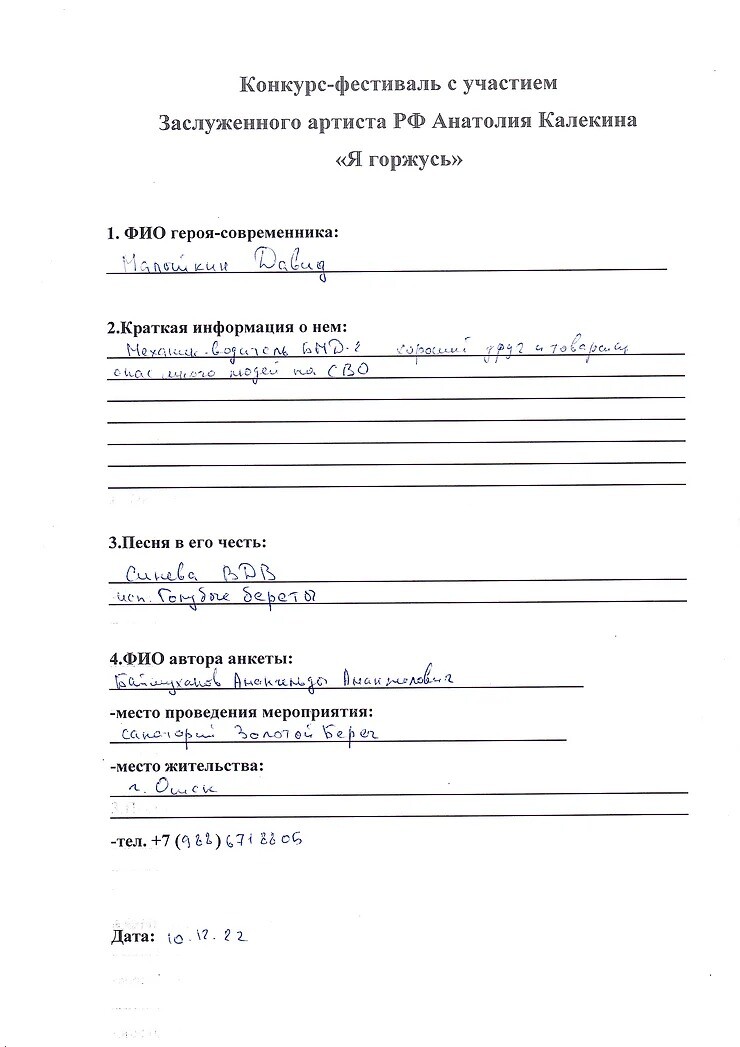 Конкурс-фестиваль с участием
Заслуженного артиста РФ Анатолия Калекина
«Я горжусь»
1. ФИО героя-современника:
Малошкин Давид
2.Краткая информация о нем:
Механик-водитель БМД-2 хороший друг и товарищ
спас много людей на СВО
3.Песня в его честь:
Синева ВДВ
исп. Голубые береты
4.ФИО автора анкеты:
Баймуханов Анатольевич
-место проведения мероприятия:
санаторий Золотой Берег
-место жительства:
г. Омск
-тел. +7 (988) 671 88 05
Дата: 10.12.22